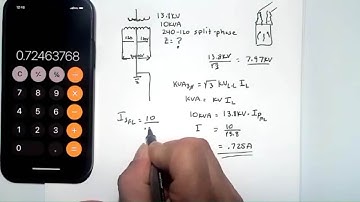 12:16
0.72463768
13.8KV
10KVA
240-120 split-phase
Z = ?
120
120
13.8KV / √3 = 7.97KV
KVA3φ = √3 KVL-L IL
KVA = KV IL
10KVA = 13.8KV · IPFL
I = 10 / 13.8
= .725A
ISFL = 10